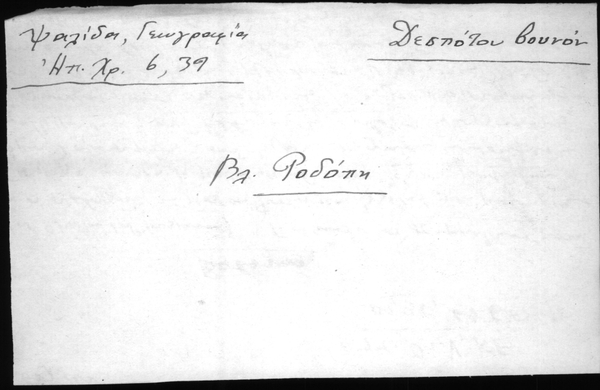 Ψαλίδα, Γεωγραφία
Ἠπ. Χρ. 6, 39
Δεσπότου βουνόν
Βλ. Ροδόπη